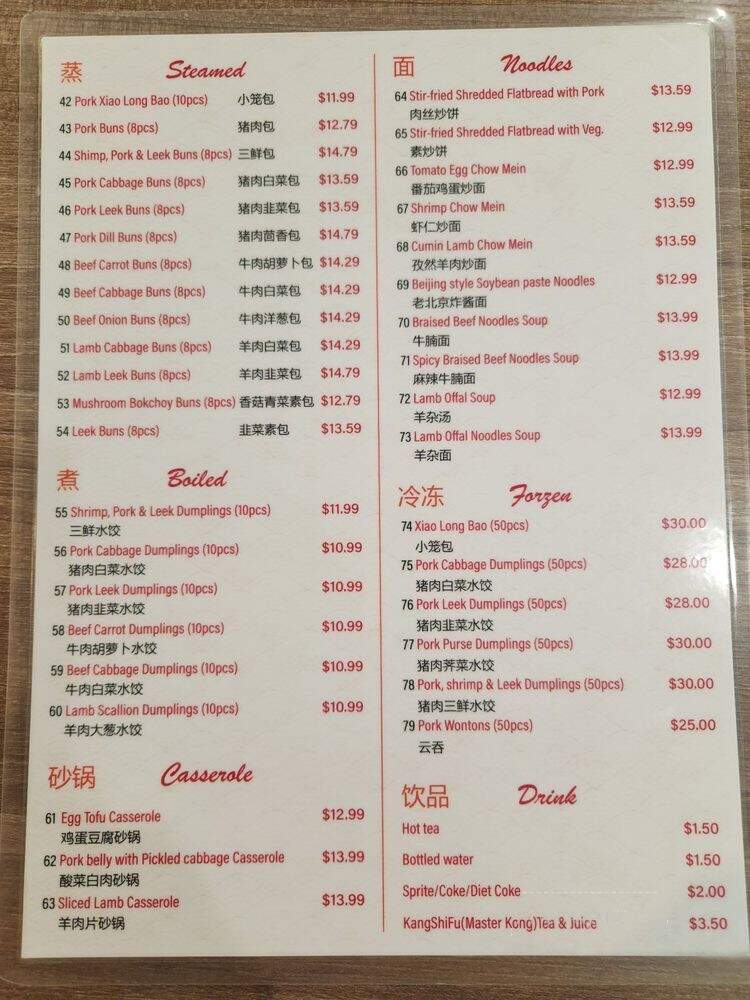 蒸 Steamed
42 Pork Xiao Long Bao (10pcs) 小笼包 $11.99
43 Pork Buns (8pcs) 猪肉包 $12.79
44 Shimp, Pork & Leek Buns (8pcs) 三鲜包 $14.79
45 Pork Cabbage Buns (8pcs) 猪肉白菜包 $13.59
46 Pork Leek Buns (8pcs) 猪肉韭菜包 $13.59
47 Pork Dill Buns (8pcs) 猪肉茴香包 $14.79
48 Beef Carrot Buns (8pcs) 牛肉胡萝卜包 $14.29
49 Beef Cabbage Buns (8pcs) 牛肉白菜包 $14.29
50 Beef Onion Buns (8pcs) 牛肉洋葱包 $14.29
51 Lamb Cabbage Buns (8pcs) 羊肉白菜包 $14.29
52 Lamb Leek Buns (8pcs) 羊肉韭菜包 $14.79
53 Mushroom Bokchoy Buns (8pcs) 香菇青菜素包 $12.79
54 Leek Buns (8pcs) 韭菜素包 $13.59
煮 Boiled
55 Shrimp, Pork & Leek Dumplings (10pcs) $11.99
三鲜水饺
56 Pork Cabbage Dumplings (10pcs) $10.99
猪肉白菜水饺
57 Pork Leek Dumplings (10pcs) $10.99
猪肉韭菜水饺
58 Beef Carrot Dumplings (10pcs) $10.99
牛肉胡萝卜水饺
59 Beef Cabbage Dumplings (10pcs) $10.99
牛肉白菜水饺
60 Lamb Scallion Dumplings (10pcs) $10.99
羊肉大葱水饺
砂锅 Casserole
61 Egg Tofu Casserole $12.99
鸡蛋豆腐砂锅
62 Pork belly with Pickled cabbage Casserole $13.99
酸菜白肉砂锅
63 Sliced Lamb Casserole $13.99
羊肉片砂锅
面 Noodles
64 Stir-fried Shredded Flatbread with Pork $13.59
肉丝炒饼
65 Stir-fried Shredded Flatbread with Veg. $12.99
素炒饼
66 Tomato Egg Chow Mein $12.99
番茄鸡蛋炒面
67 Shrimp Chow Mein $13.59
虾仁炒面
68 Cumin Lamb Chow Mein $13.59
孜然羊肉炒面
69 Beijing style Soybean paste Noodles $12.99
老北京炸酱面
70 Braised Beef Noodles Soup $13.99
牛腩面
71 Spicy Braised Beef Noodles Soup $13.99
麻辣牛腩面
72 Lamb Offal Soup $12.99
羊杂汤
73 Lamb Offal Noodles Soup $13.99
羊杂面
冷冻 Forzen
74 Xiao Long Bao (50pcs) $30.00
小笼包
75 Pork Cabbage Dumplings (50pcs) $28.00
猪肉白菜水饺
76 Pork Leek Dumplings (50pcs) $28.00
猪肉韭菜水饺
77 Pork Purse Dumplings (50pcs) $30.00
猪肉荠菜水饺
78 Pork, shrimp & Leek Dumplings (50pcs) $30.00
猪肉三鲜水饺
79 Pork Wontons (50pcs) $25.00
云吞
饮品 Drink
Hot tea $1.50
Bottled water $1.50
Sprite/Coke/Diet Coke $2.00
KangShiFu(Master Kong)Tea & Juice $3.50